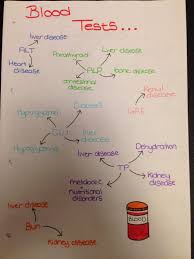 Blood
Tests...
liver disease
ALT
Heart
disease
Parathyroid
liver disease
ALP
bone disease
intestinal
disease
Diabetes
Renal
disease
CRE
GLU
liver
disease
liver disease
Dehydration
TP
Kidney
disease
metabolic
nutritional
disorders
liver disease
Bun
Kidney disease
BLOOD